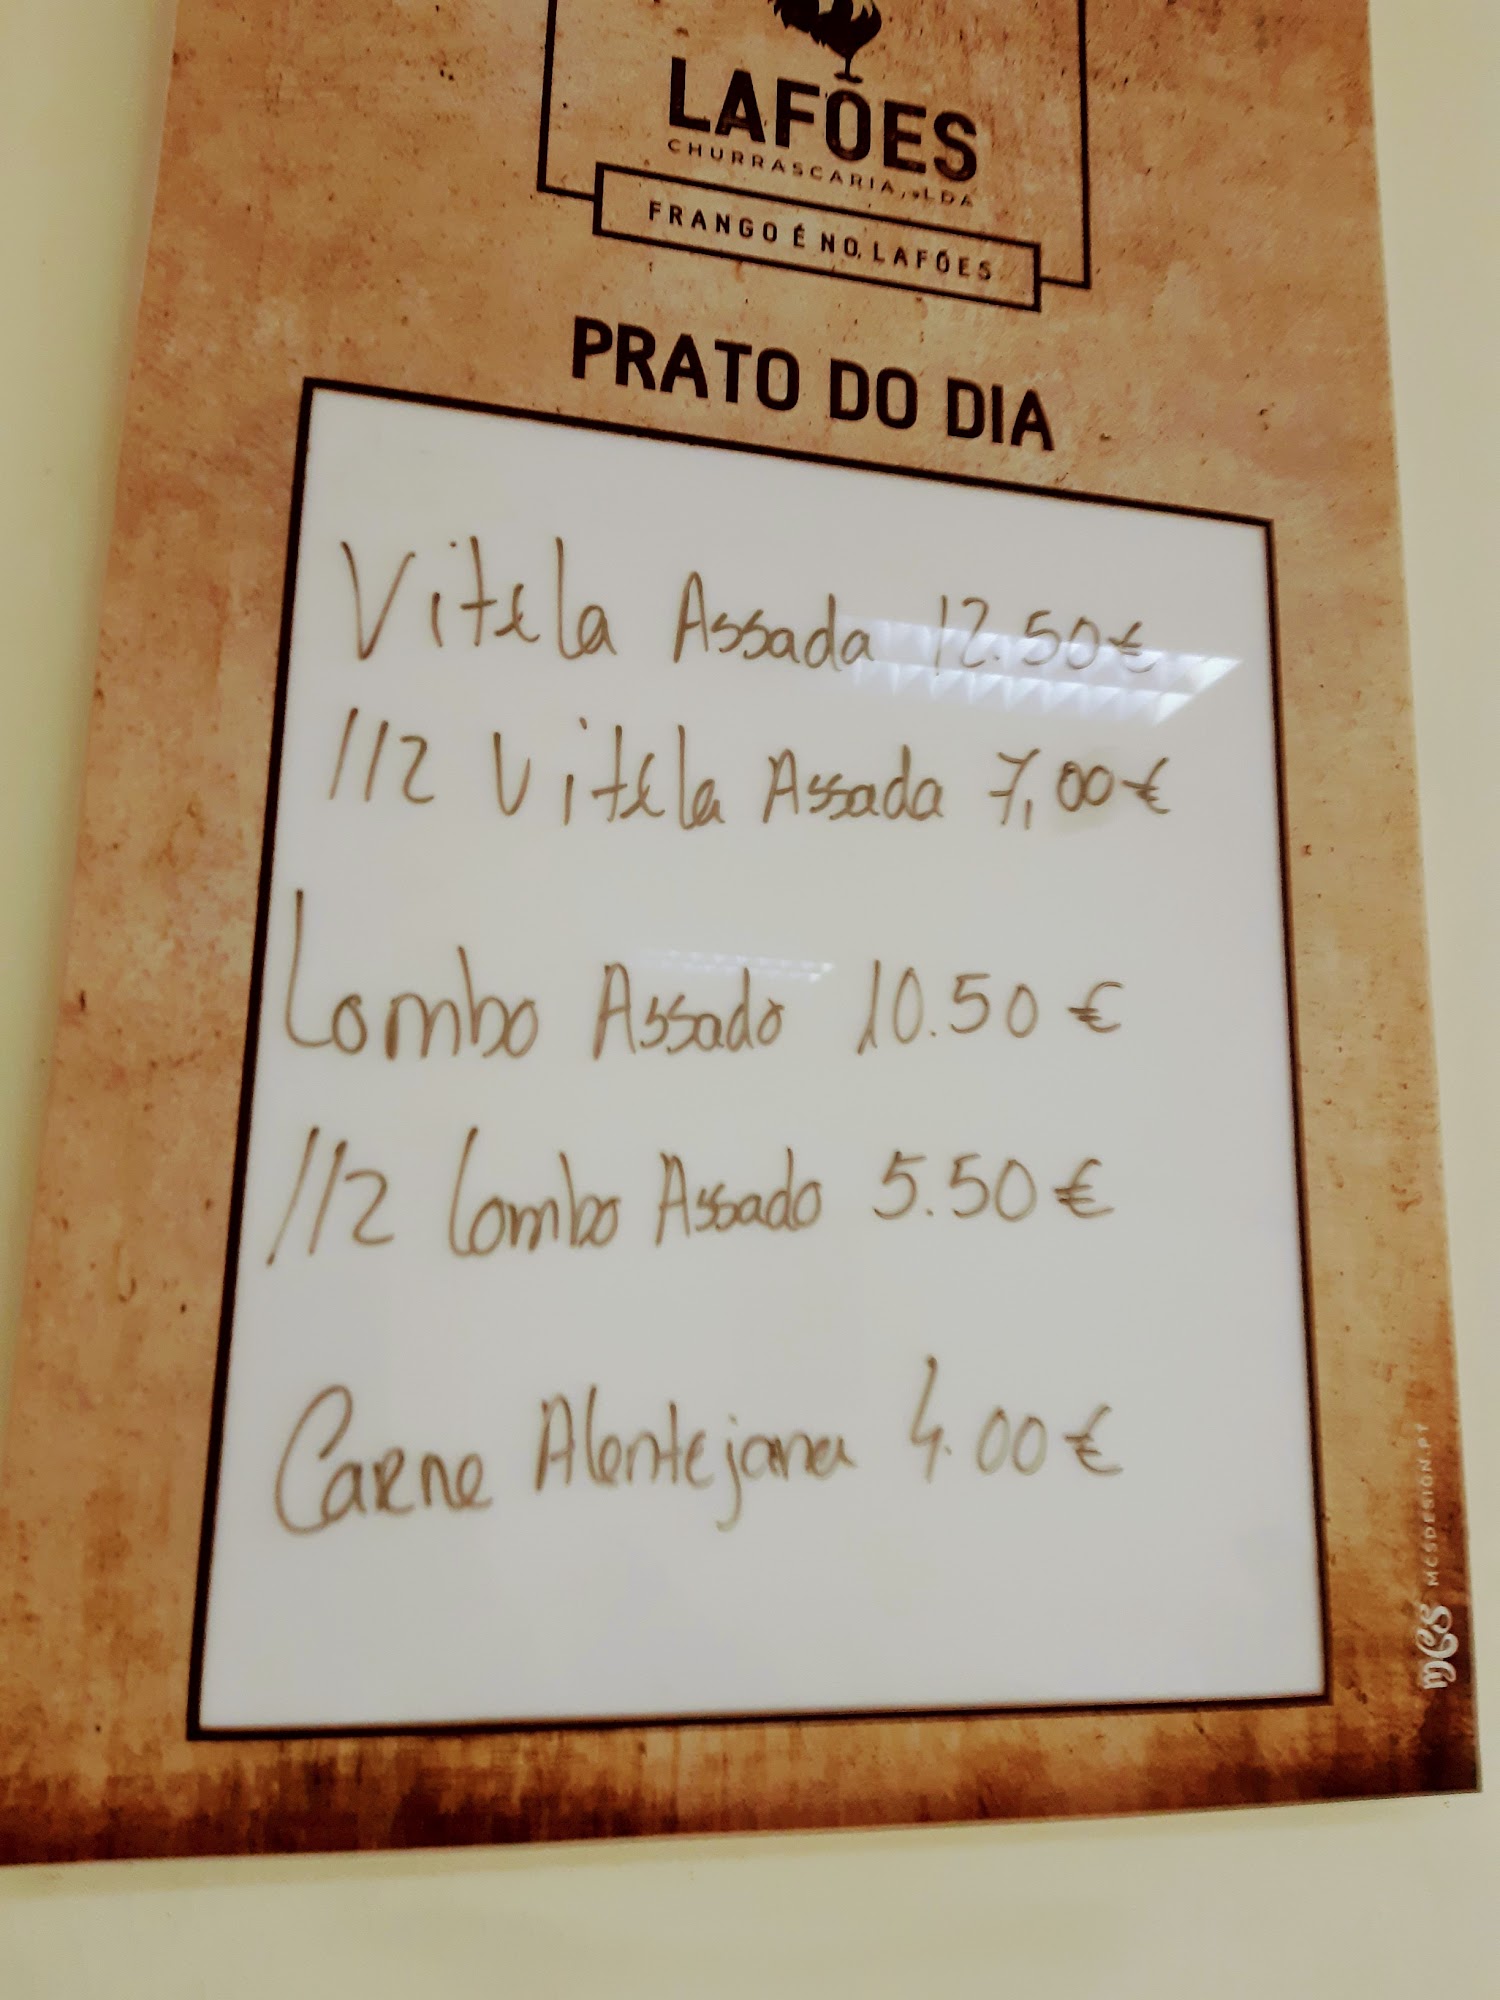 LAFÕES
CHURRASCARIA, LDA
FRANGO É NO LAFÕES
PRATO DO DIA
Vitela Assada 12.50€
1/2 Vitela Assada 7,00€
Lombo Assado 10.50€
1/2 Lombo Assado 5.50€
Carne Alentejana 4.00€
MCSDESIGN.PT
mcs